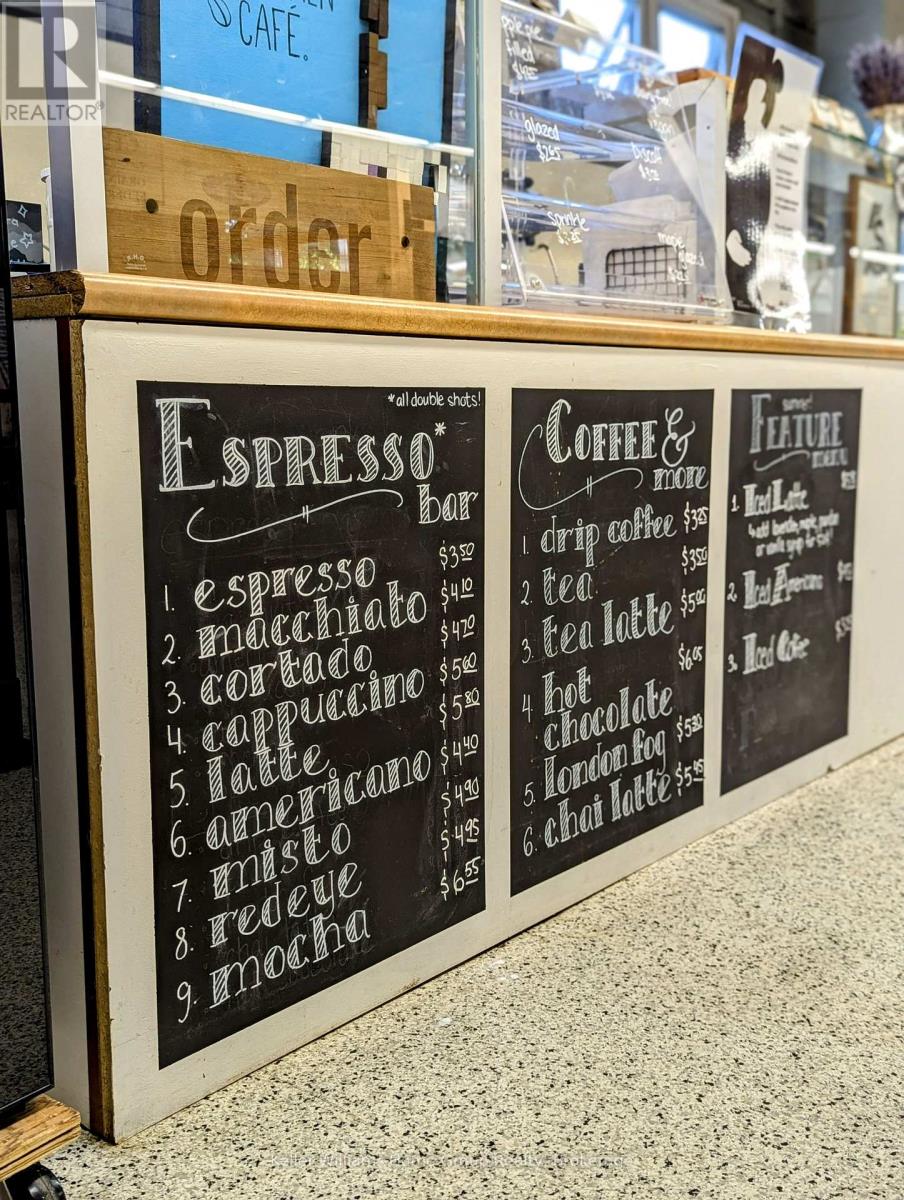 CAFÉ.
REALTOR®
order
filled
glazed
$2.65
biscotti
sprinkle
*all double shots!
ESPRESSO*
bar
1. espresso $3.50
2. macchiato $4.10
3. cortado $4.70
4. cappuccino $5.00
5. latte $5.80
6. americano $4.40
7. misto $4.90
8. redeye $4.95
9. mocha $6.55
COFFEE &
more
1. drip coffee $3.25
2. tea $3.50
3. tea latte $5.90
4. hot
chocolate $6.05
5. london fog $5.30
6. chai latte $5.45
summer!
FEATURE
menu
1. Iced Latte
2. Iced Americano
3. Iced Coffee